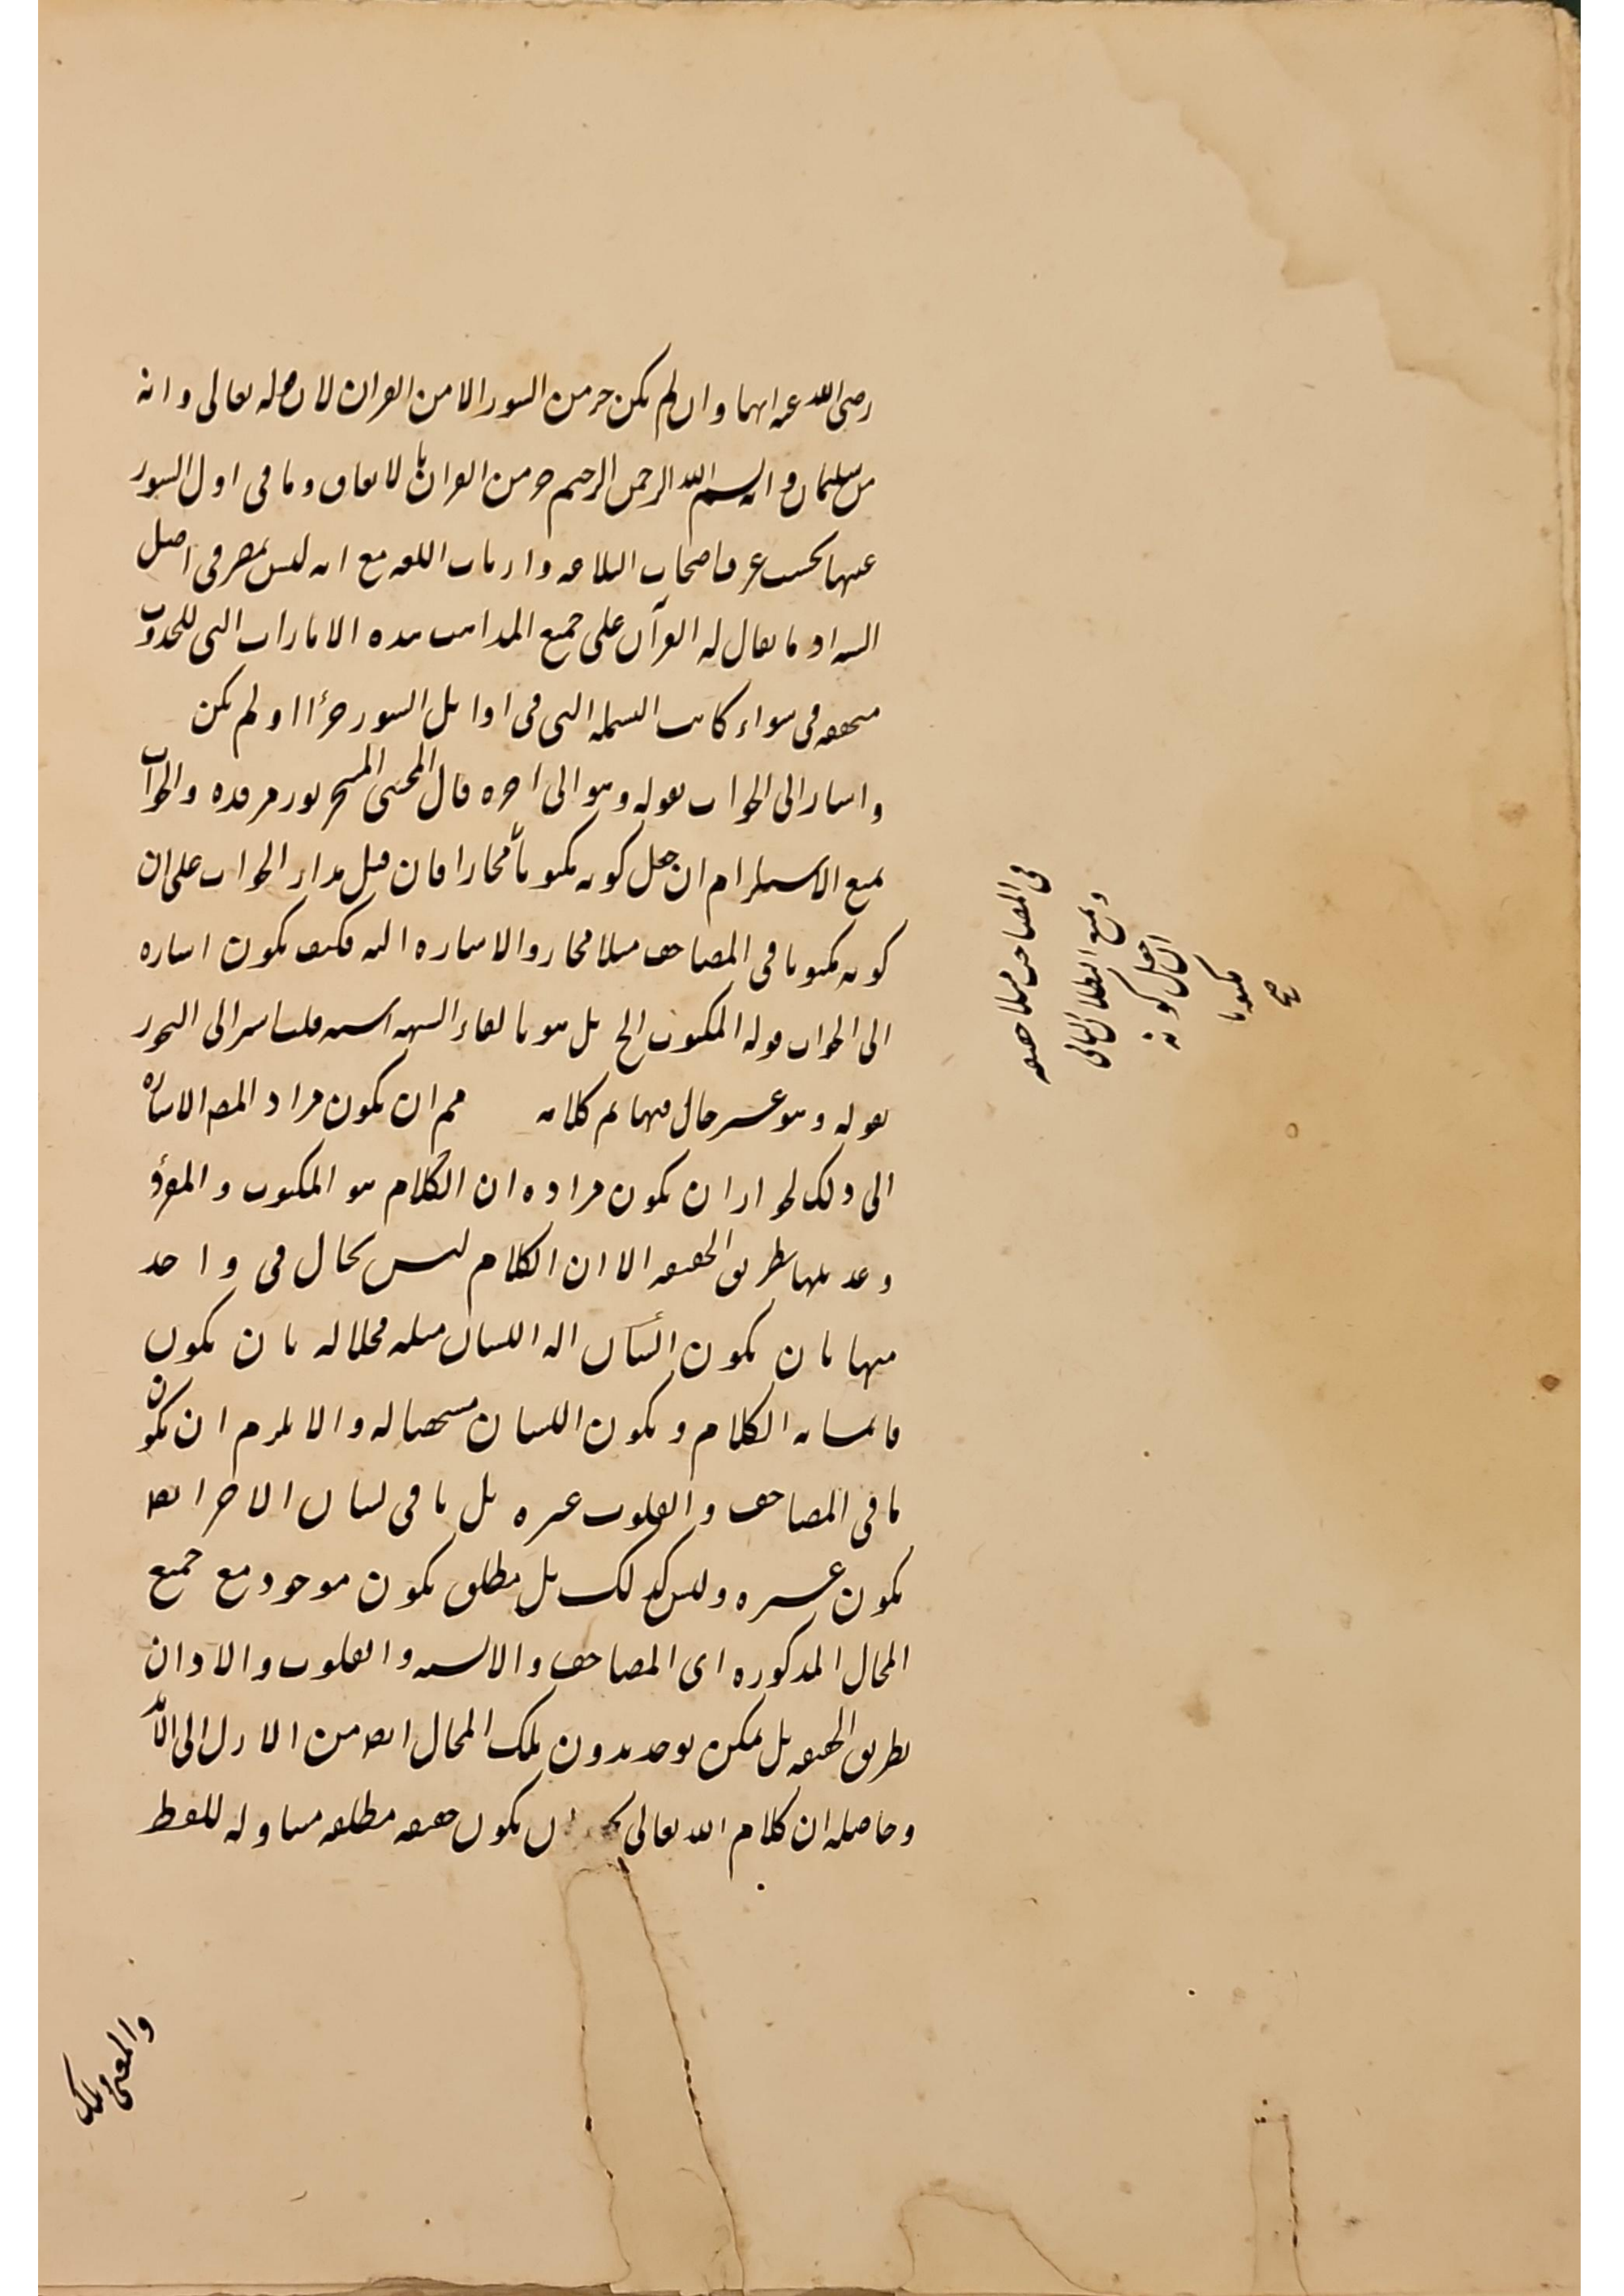 رضى الله عنه انها وان لم يكن جزء من السور الا من القران لان قوله تعالى وانه
من سليمان وانه بسم الله الرحمن الرحيم جزء من القران بالاتفاق وما فى اول السور
عينها بحسب عرف اصحاب البلاغه وارباب اللغه مع انه ليس بمضر فى اصل
اذ ما يقال له القرآن على جميع المذاهب هذه الامارات التى للحدوث
متحققه فى سواء كانت البسمله التى فى اوايل السور جزءا او لم يكن
واشار الى الجواب بقوله وهو الى اخره قال المحشى نور مرقده والجواب
بمنع الاستلزام ان جعل كونه مكتوبا مجازا فان قيل مدار الجواب على ان
كونه مكتوبا فى المصاحف مثلا مجاز والاشاره اليه فكيف يكون اشاره
الى الجواب قوله المكتوب الخ بل هو بالقاء الشبهه اشبه قلت اشير الى التجوز
بقوله وهو غير حال فيها تم كلامه ان يكون مراد المص الاشاره
الى ذلك لجواز ان يكون مراده ان الكلام هو المكتوب والمقروء
وعديلها بطريق الحقيقه الا ان الكلام ليس بحال فى واحد
منها بان يكون اللسان مثله محلا له بان يكون
الكلام ويكون اللسان له والا يلزم ان يكون
ما فى المصاحف والقلوب غيره بل ما فى لسان الاخر ايضا
يكون غيره وليس كذلك بل مطلق يكون موجود مع جميع
المحال المذكوره اى المصاحف والالسنه والقلوب والاذان
بطريق الحقيقه بل يمكن يوجد بدون تلك المحال ايضا من الازل الى الابد
وحاصله ان كلام الله تعالى يكون حقيقه مطلقه متناوله للفظ
والمعنى وتلك
ويمنع البطلان التالى
ان جعل كونه
مكتوبا
فى المصاحف مثلا حقيقه
صح